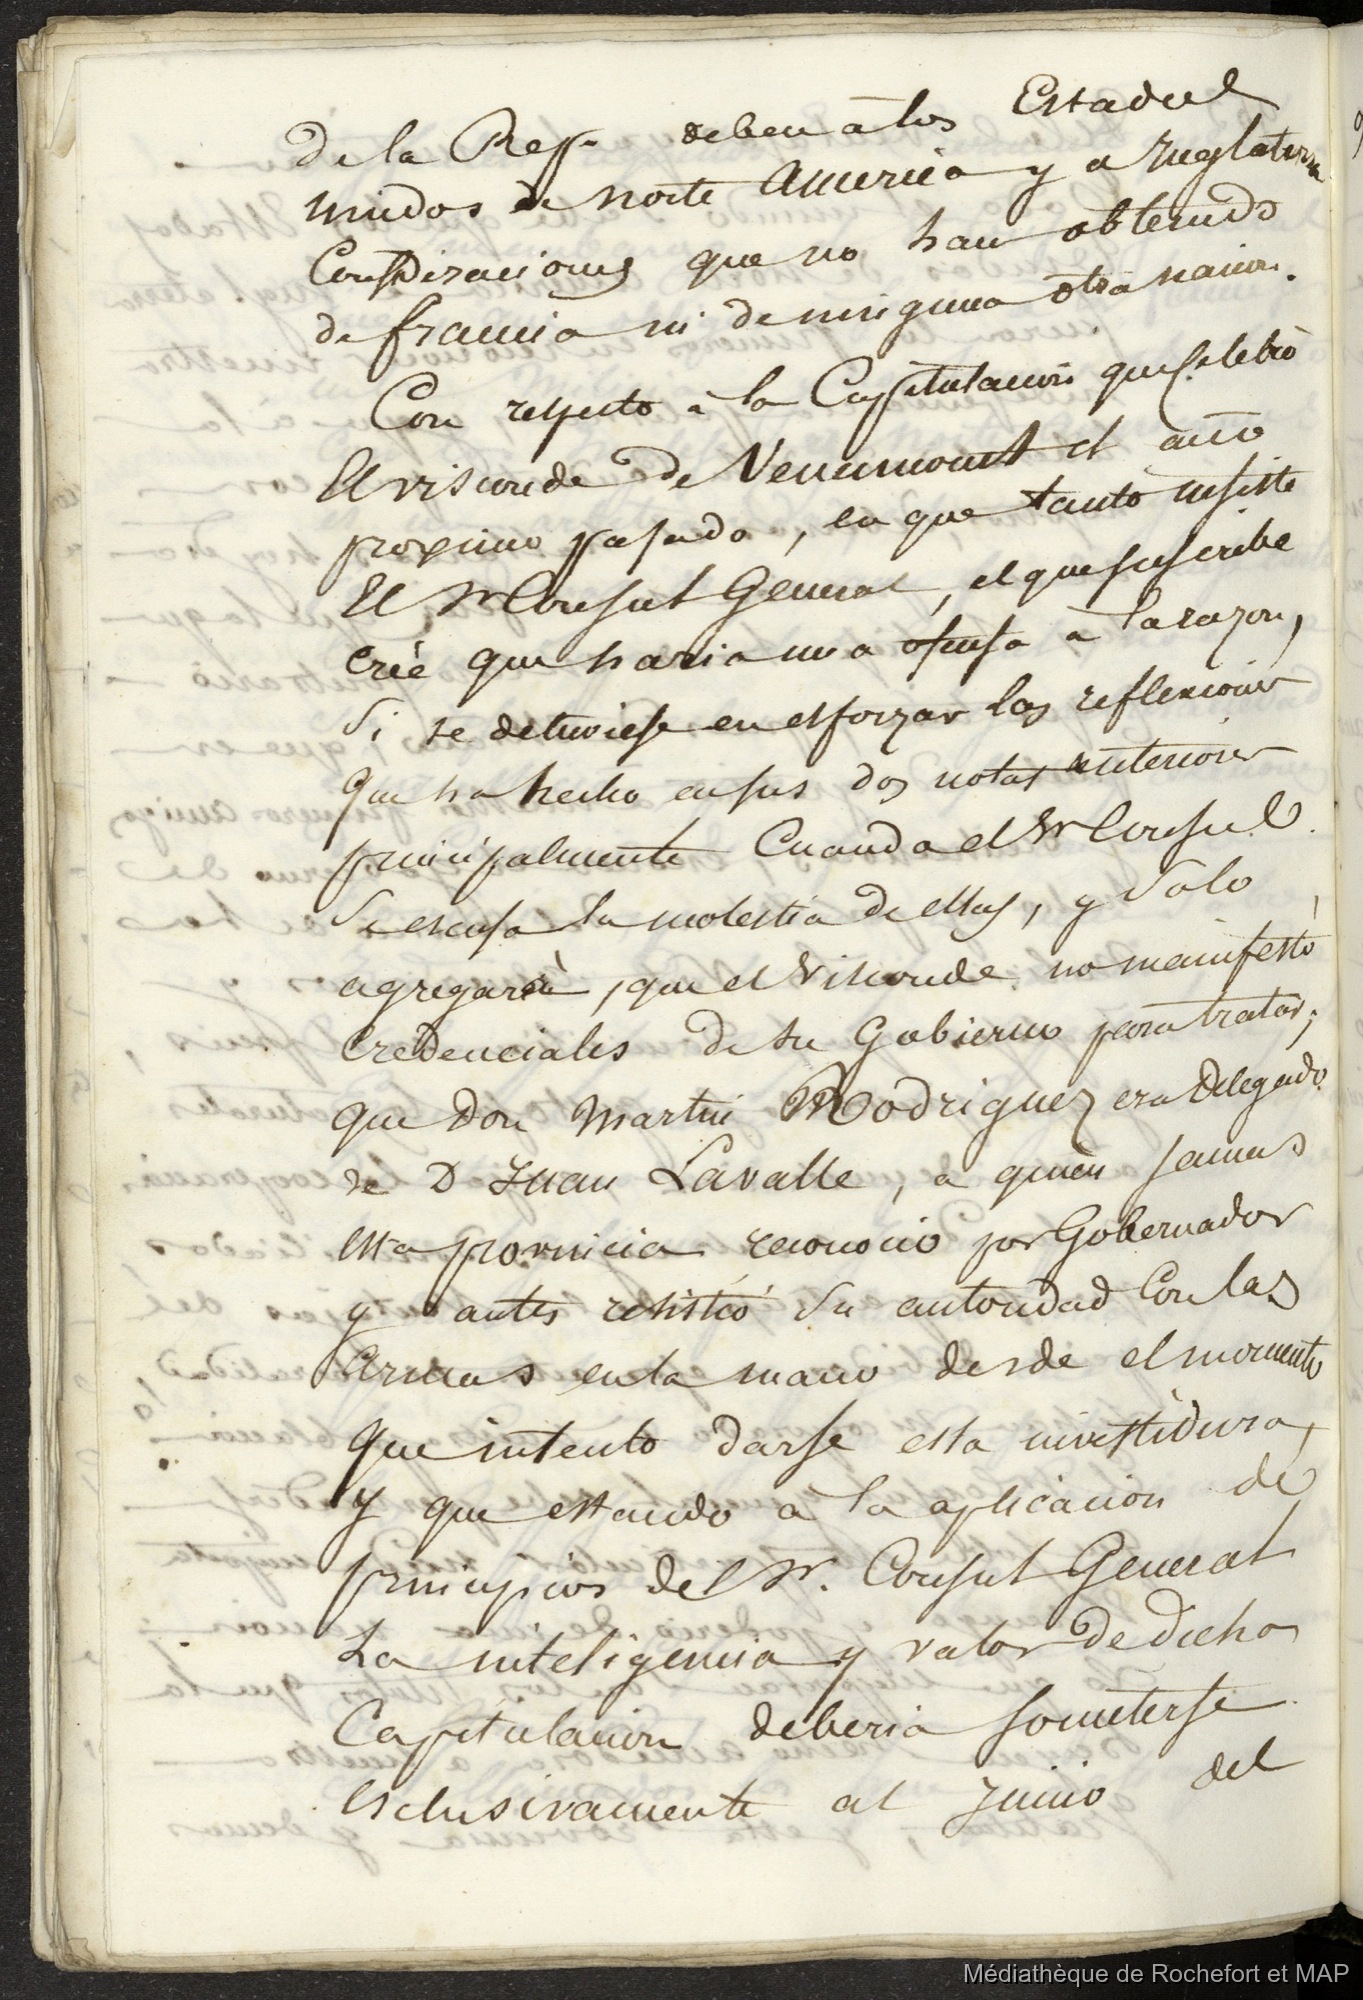 de la Repa. deben à los Estados
unidos de norte America y a Ynglaterra
Consideraciones que no han obtenido
de francia ni de ninguna otra nacion.
Con respecto à la Capitulacion que celebró
El visconde de Venumount el año
proximo pasado, en que tanto insiste
El Sr Consul General, el que suscribe
crée que haria una ofensa à la razon,
Si se detuviese en esforzar las reflexiones
que ha hecho en sus dos notas anteriores
principalmente Cuando el Sr Consul
Se escusa la molestia de ellas, y Solo
agregarà, que el Visconde no manifestó
credenciales de su Gobierno para tratar;
que Don Martin Rodriguez era Delegado
de D Juan Lavalle, a quien jamas
esta provincia reconocio por Gobernador
y antes resistió su autoridad Con las
armas en la mano desde el momento
que intento darse esta investidura,
y que estando à la aplicacion de
principios del Sr. Consul General
La inteligencia y valor de dicha
Capitulacion deberia someterse
esclusivamente al juicio del
Médiathèque de Rochefort et MAP